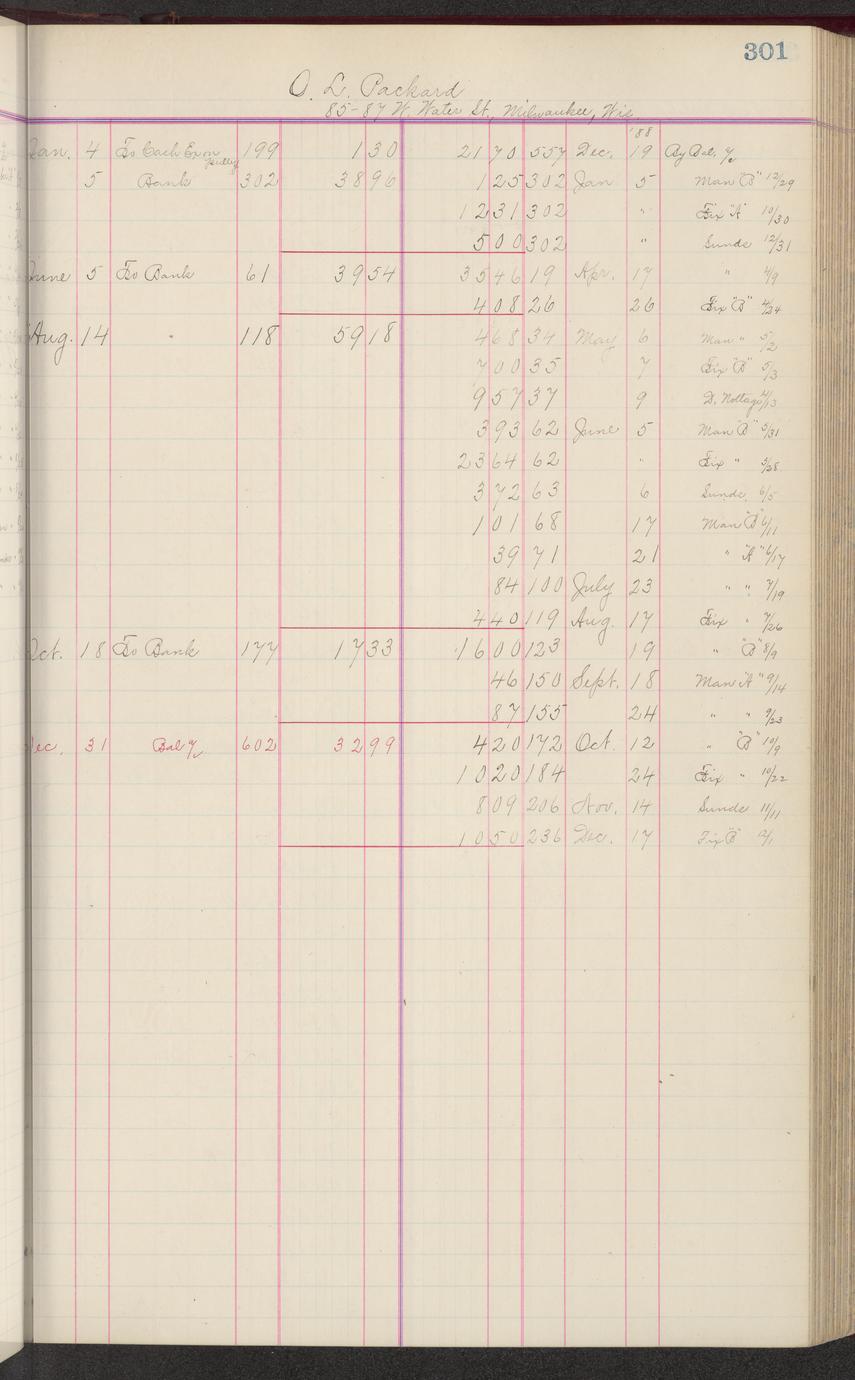 301
O. L. Packard
85-87 W. Water St., Milwaukee, Wis
'88
Jan. 4 To Cash Ex on 199 1 30 21 70 557 Dec. 19 By Bal. %
5 Bank 302 38 96 1 25 302 Jan 5 Man "B" 12/29
12 31 302 " Fix "A" 10/30
5 00 302 " Sunds 12/31
June 5 To Bank 61 39 54 35 46 19 Apr. 17 " 4/9
4 08 26 26 Fix "B" 4/24
Aug. 14 " 118 59 18 4 68 34 May 6 Man " 5/2
7 00 35 7 Fix "B" 5/3
9 57 37 9 D. Nottage 4/13
3 93 62 June 5 Man "B" 5/31
23 64 62 " Fix " 5/28
3 72 63 6 Sunds. 6/5
1 01 68 17 Man "B" 6/11
39 71 21 " "A" 6/17
84 100 July 23 " " 7/19
4 40 119 Aug. 17 Fix " 7/26
Oct. 18 To Bank 177 17 33 16 00 123 19 " "B" 8/9
46 150 Sept. 18 Man "A" 9/14
87 155 24 " " 9/23
Dec. 31 Bal % 602 32 99 4 20 172 Oct. 12 " "B" 10/9
10 20 184 24 Fix " 10/22
8 09 206 Nov. 14 Sunds 11/11
10 50 236 Dec. 17 Fix "B" 12/1